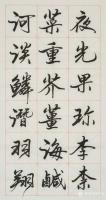 夜光果珍李柰
菜重芥薑海鹹
河淡鱗潛羽翔